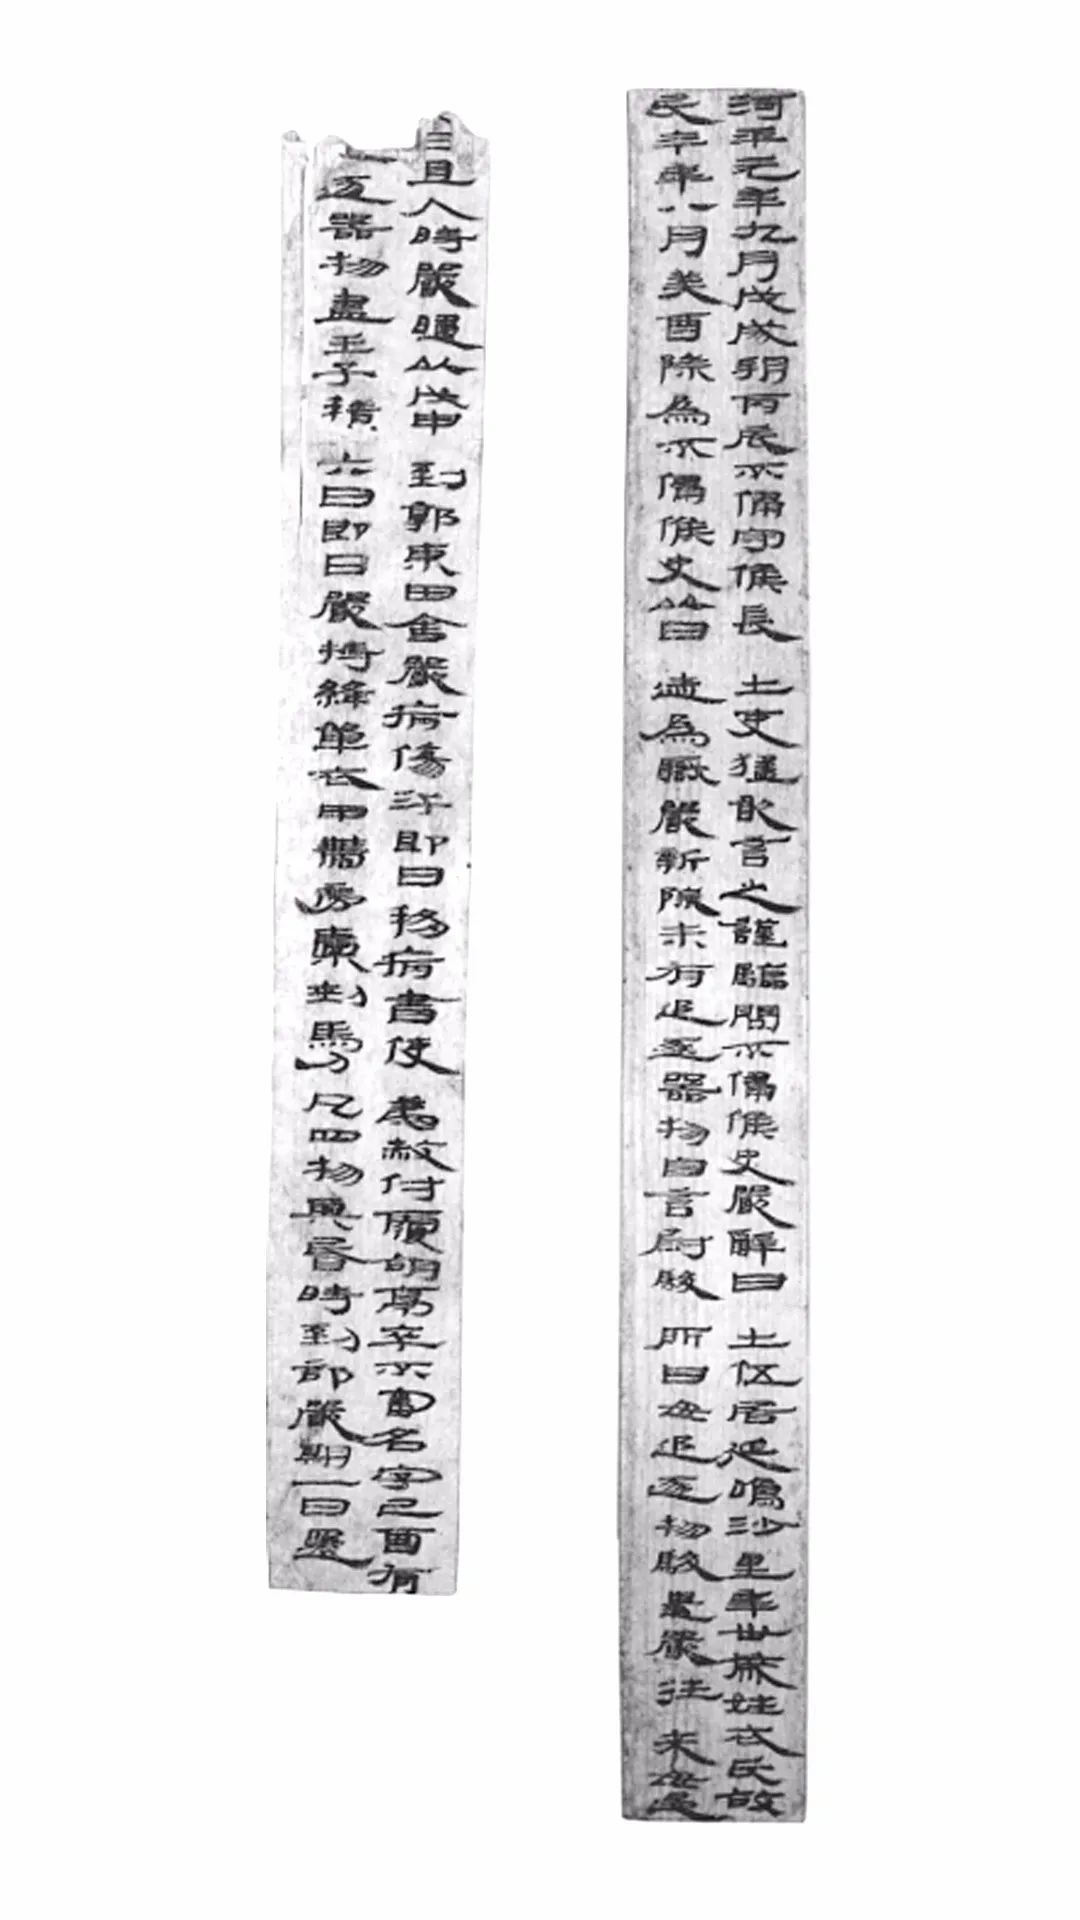 河平元年九月戊戌朔丙辰不侵守候長士吏猛敢言之謹驗問不侵候史嚴辭曰士伍居延鳴沙里年卅歲姓衣氏故
民今年八月癸酉除為不侵候史以日迹為職嚴新除未有追逐器物自言尉駿所曰毋追逐物駿遣嚴往來毋過
且入時嚴 以戊申到郭東田舍嚴病傷汗即日移病書使 赦付 胡 卒不 名字己酉有
逐器物盡壬子 六日即日嚴持絳單衣甲 刀凡四物 時到部嚴期一日還